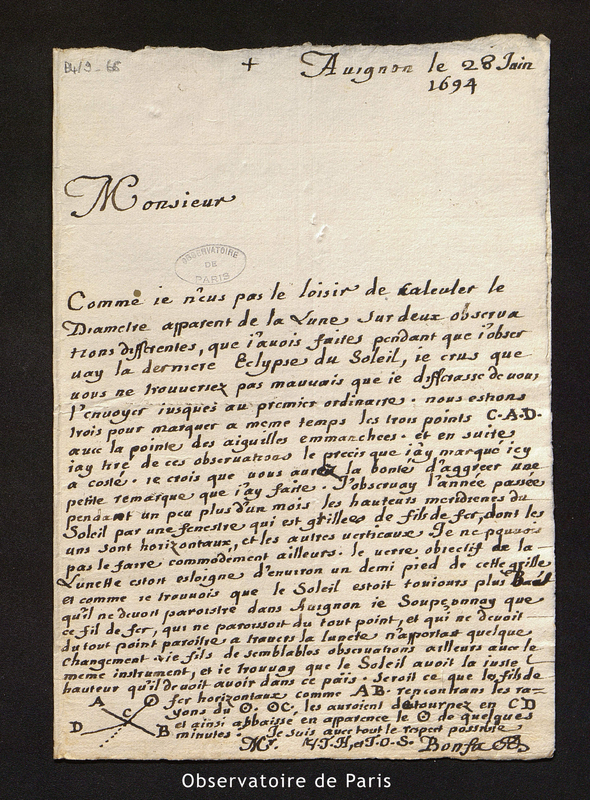 B4/9-68
+ Auignon le 28 Juin
1694
Monsieur
OBSERVATOIRE
DE
PARIS
Comme ie n'eus pas le loisir de calculer le
Diametre apparent de la Lune sur deux observa
tions differentes, que i'auois faites pendant que i'obser
uay la derniere Eclypse du Soleil, ie crus que
uous ne trouueriez pas mauuais que ie differasse de uous
l'enuoyer iusques au premier ordinaire. nous estions
trois pour marquer a meme temps les trois points C.A.D.
auec la pointe des aiguilles emmanchees. et en suite
i'ay tiré de ces observations le precis que i'ay marqué icy
a costé. ie crois que uous aurez la bonté d'aggreer une
petite remarque que i'ay faite. J'obseruay l'année passée
pendant un peu plus d'un mois les hauteurs meridienes du
Soleil par une fenestre qui est grillee de fils de fer, dont les
uns sont horizontaux, et les autres uerticaux. Je ne pouuois
pas le faire commodement ailleurs. le uerre obiectif de la
Lunette estoit esloigne d'enuiron un demi pied de cette grille
et comme ie trouuois que le Soleil estoit touiours plus
qu'il ne deuoit paroistre dans Auignon ie Soupçonnay que
ce fil de fer, qui ne paroissoit du tout point, et qui ne deuoit
du tout point paroitre a trauers la lunete n'apportat quelque
changement. ie fis de semblables obseruations ailleurs auec le
meme instrument, et ie trouuay que le Soleil auoit la iuste
hauteur qu'il deuoit auoir dans ce païs. Seroit ce que les fils de
fer horizontaux comme AB. rencontrans les ra-
yons du ʘ. ʘC. les auroient detournez en CD
et ainsi abbaisse en apparence le ʘ de quelques
minutes. Je suis auec tout le respect possible
A ʘ
C
D B
Mr. V.T.H. et T.O.S. Bonfa
Observatoire de Paris